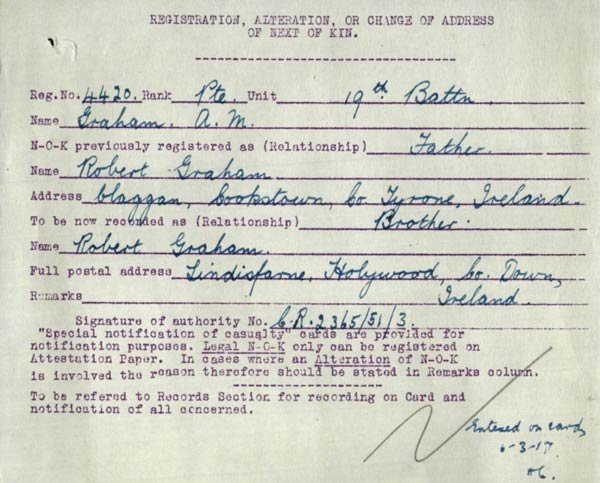 REGISTRATION, ALTERATION, OR CHANGE OF ADDRESS
OF NEXT OF KIN.
Reg. No. 4420. Rank Pte. Unit 19th Battn.
Name Graham. A. M.
N-O-K previously registered as (Relationship) Father.
Name Robert Graham.
Address Claggan, Cookstown, Co Tyrone, Ireland.
To be now recorded as (Relationship) Brother.
Name Robert Graham.
Full postal address Lindisfarne, Holywood, Co. Down,
Remarks Ireland.
Signature of authority No. C.R.2365/51/3.
"Special notification of casualty" cards are provided for
notification purposes. Legal N-O-K only can be registered on
Attestation Paper. In cases where an Alteration of N-O-K
is involved the reason therefore should be stated in Remarks column.
To be referred to Records Section for recording on Card and
notification of all concerned.
Entered on cards
6-3-17.